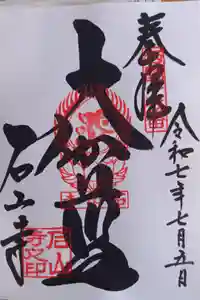 奉拝
令和七年七月五日
大伽藍
石山寺
石山
寺之印